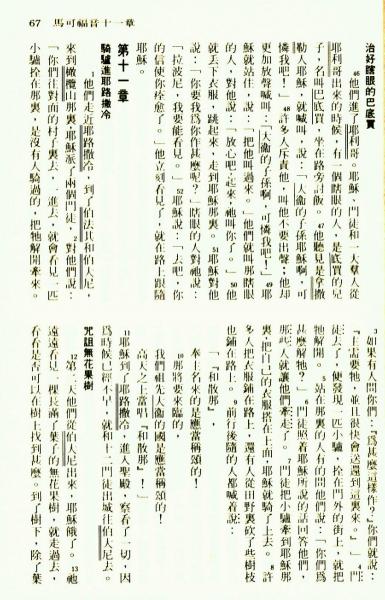 67 馬可福音十一章
治好瞎眼的巴底買
46他們進了耶利哥。耶穌、門徒和一大羣人從
耶利哥出來的時候,有一個瞎眼的人,是底買的兒
子,名叫巴底買,坐在路旁討飯。47他聽見是拿撒
勒人耶穌,就喊叫,說:「大衞的子孫耶穌啊,可
憐我吧!」48許多人斥責他,叫他不要出聲;他却
更加放聲喊叫:「大衞的子孫啊,可憐我吧!」49耶
穌就站住,說:「把他叫過來。」他們就叫那瞎眼
的人,對他說:「放心吧!起來,祂叫你了。」50他
就丟下衣服,跳起來,走到耶穌那裏。51耶穌對他
說:「你要我爲你作甚麼呢?」瞎眼的人對祂說:
「拉波尼,我要能看見。」52耶穌說:「去吧,你
的信使你痊愈了。」他立刻看見了,就在路上跟隨
耶穌。
第十一章
騎驢進耶路撒冷
1他們走近耶路撒冷,到了伯法其和伯大尼,
來到橄欖山那裏,耶穌派了兩個門徒,2對他們說:
「你們往對面的村子裏去,一進去,就會看見一匹
小驢拴在那裏,是沒有人騎過的,把牠解開牽來。
3如果有人問你們:『爲甚麼這樣作?』你們就說:
『主需要牠,並且很快會送還到這裏來。』」4門
徒去了,便發現一匹小驢,拴在門外的街上,就把
牠解開。5站在那裏的人有的問他們說:「你們爲
甚麼解牠?」6門徒照着耶穌所說的話回答他們,
那些人就讓他們牽走了。7門徒把小驢牽到耶穌那
裏,把自己的衣服搭在上面,耶穌就騎了上去。8許
多人把衣服鋪在路上,還有人從田野裏砍了些樹枝
也鋪在路上。9前行後隨的人都喊着說:
「『和散那』,
奉主名來的是應當稱頌的!
10那將要來臨的,
我們祖先大衞的國是應當稱頌的!
高天之上當唱『和散那』!」
11耶穌到了耶路撒冷,進入聖殿,察看了一切,因
爲時候已經不早,就和十二門徒出城往伯大尼去。
咒詛無花果樹
12第二天他們從伯大尼出來,耶穌餓了。13祂
遠遠看見一棵長滿了葉子的無花果樹,就走過去,
看看是否可以在樹上找到甚麼。到了樹下,除了葉